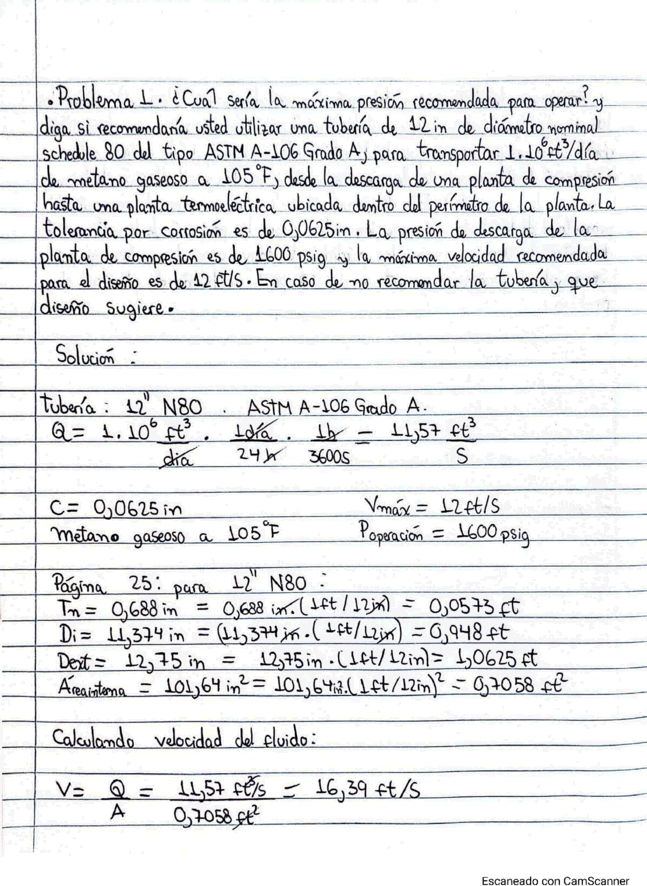 . Problema 1. ¿Cuál sería la máxima presión recomendada para operar? y
diga si recomendaría usted utilizar una tubería de 12 in de diámetro nominal
schedule 80 del tipo ASTM A-106 Grado A, para transportar 1.10⁶ft³/día
de metano gaseoso a 105°F, desde la descarga de una planta de compresión
hasta una planta termoeléctrica ubicada dentro del perímetro de la planta. La
tolerancia por corrosión es de 0,0625in. La presión de descarga de la
planta de compresión es de 1600 psig y la máxima velocidad recomendada
para el diseño es de 12 ft/s. En caso de no recomendar la tubería, que
diseño sugiere.
Solución :
tubería : 12" N80 . ASTM A-106 Grado A.
Q = 1.10⁶ ft³/día . 1día/24h . 1h/3600s = 11,57 ft³/s
C = 0,0625 in Vmáx = 12 ft/s
metano gaseoso a 105°F Poperación = 1600 psig
Página 25: para 12" N80 :
Tn = 0,688 in = 0,688 in.(1ft/12in) = 0,0573 ft
Di = 11,374 in = (11,374in.(1ft/12in) = 0,948 ft
Dext = 12,75 in = 12,75in.(1ft/12in) = 1,0625 ft
Áreainterna = 101,64 in² = 101,64in².(1ft/12in)² = 0,7058 ft²
Calculando velocidad del fluido:
V = Q/A = 11,57 ft³/s / 0,7058 ft² = 16,39 ft/s
Escaneado con CamScanner